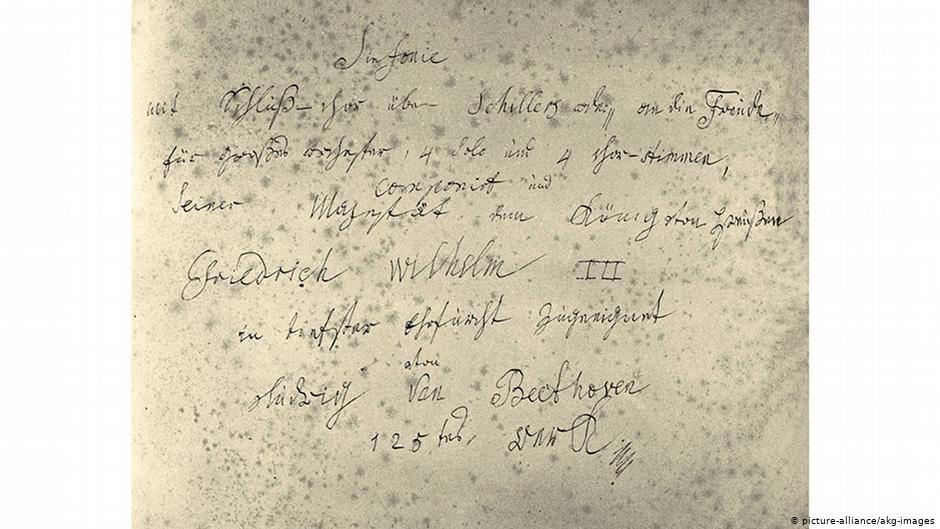 Sinfonie
mit Schluß-chor über Schillers ode: „an die Freude"
für großes orchester, 4 Solo und 4 chor-stimmen,
componirt und
Seiner Majestät dem König von Preußen
Friedrich Wilhelm III
in tiefster Ehrfurcht zugeeignet
von
Ludwig van Beethoven
125tes Werk
© picture-alliance/akg-images